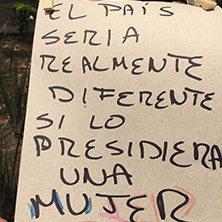 EL PAÍS
SERIA
REALMENTE
DIFERENTE
SI LO
PRESIDIERA
UNA
MUJER